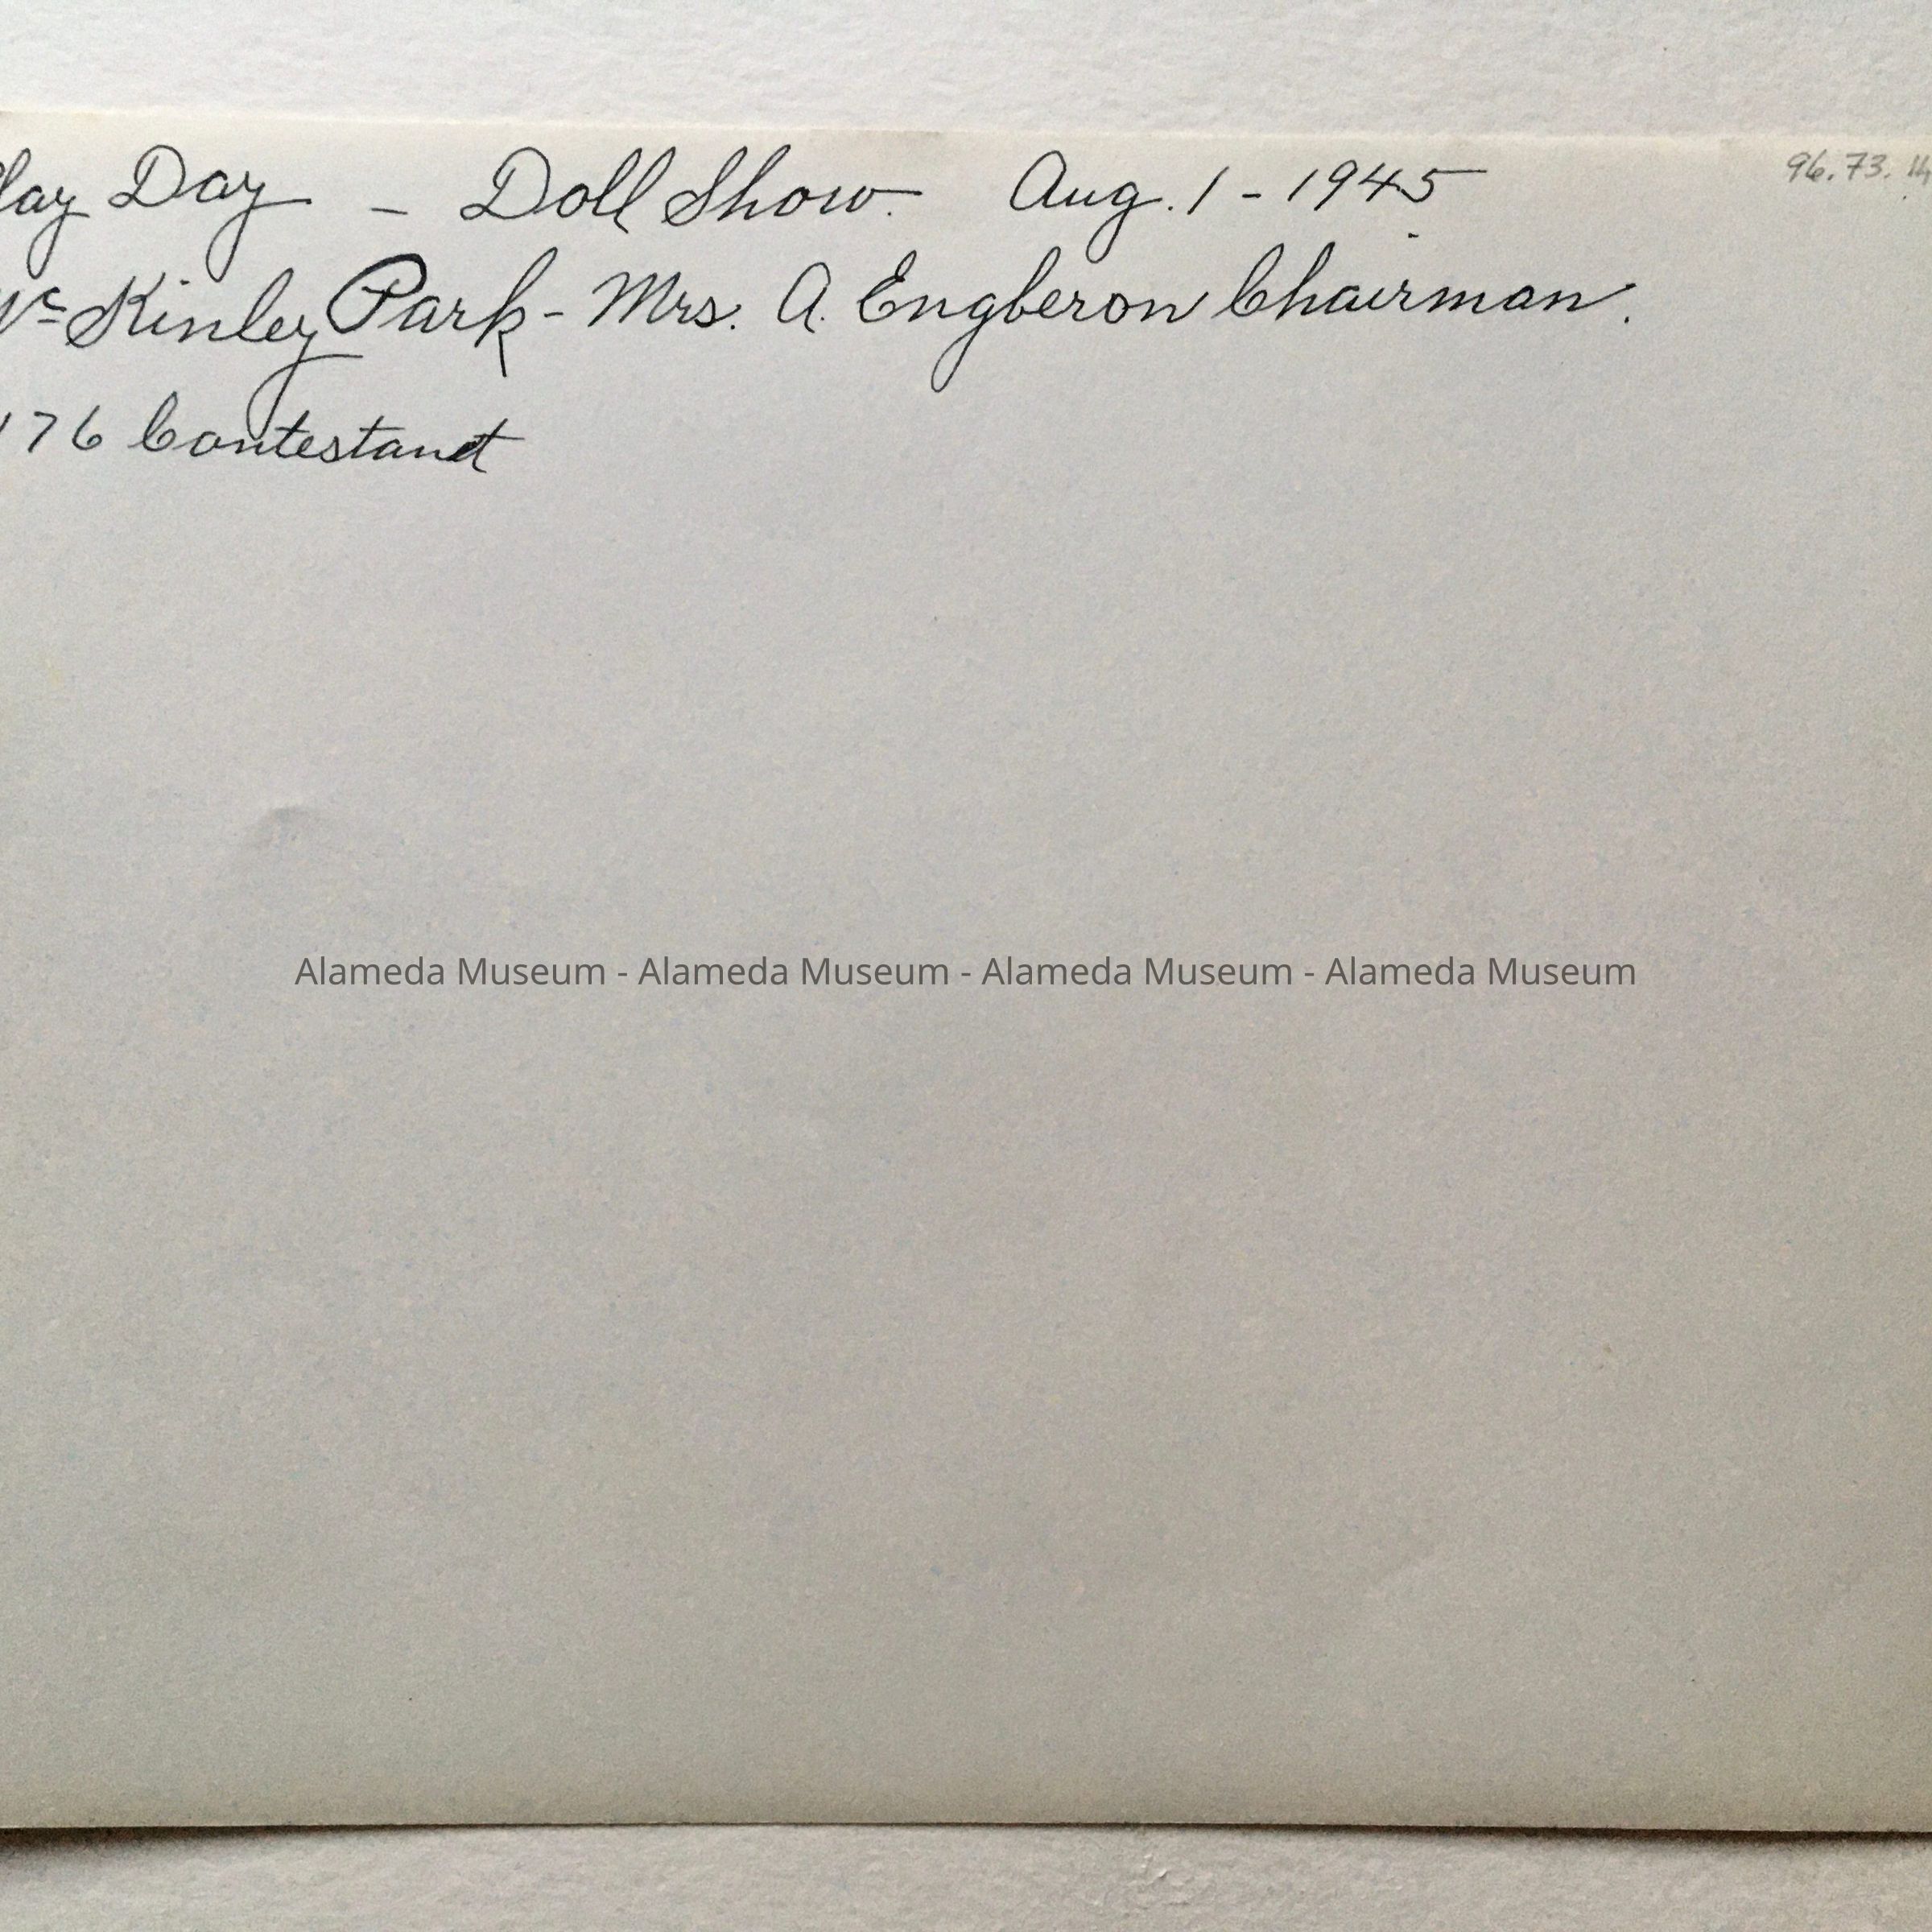 lay Day - Doll Show. Aug. 1 - 1945
Mc Kinley Park - Mrs. A. Engberon Chairman.
176 Contestant
96.73.
Alameda Museum - Alameda Museum - Alameda Museum - Alameda Museum